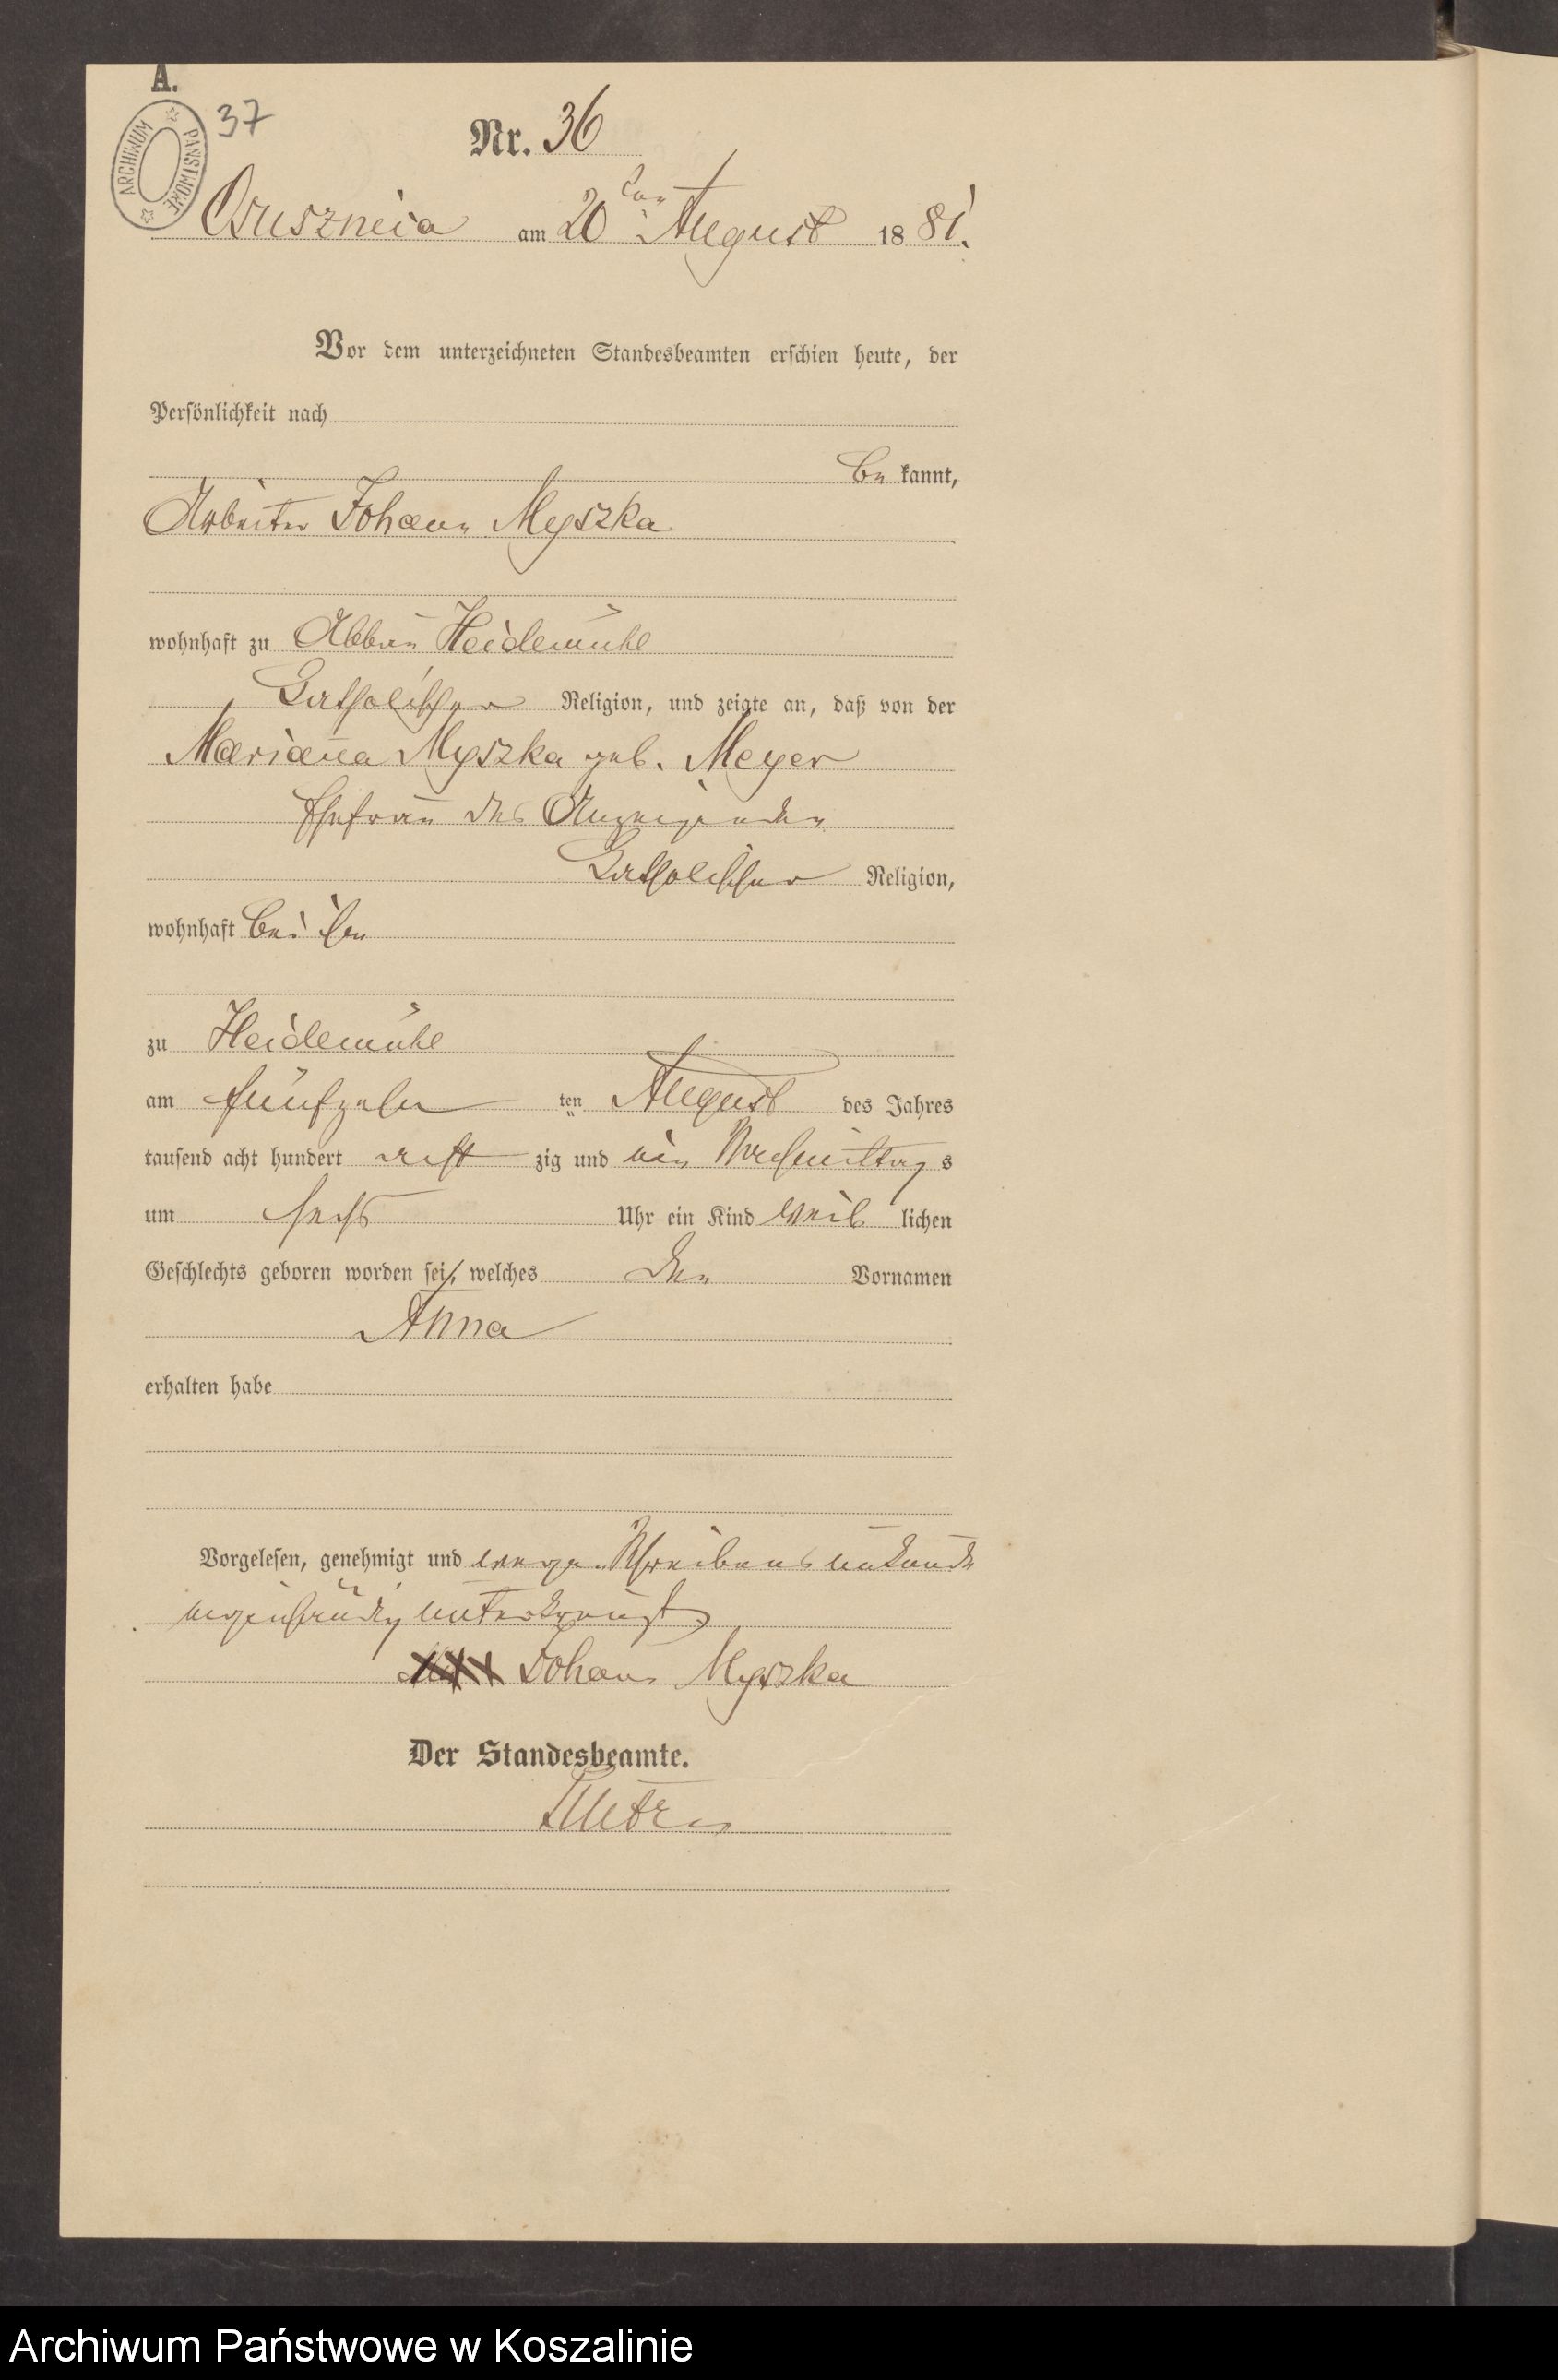 A.
ARCHIWUM PAŃSTWOWE
37
Nr. 36
Ossusznica am 20ten August 1881.
Vor dem unterzeichneten Standesbeamten erschien heute, der
Persönlichkeit nach
be kannt,
Arbeiter Johann Myszka
wohnhaft zu Abbau Heidemühl
Catholischer Religion, und zeigte an, daß von der
Marianna Myszka geb. Meyer
Ehefrau des Anzeigenden
Catholischer Religion,
wohnhaft bei ihm
zu Heidemühl
am fünfzehn ten August des Jahres
tausend acht hundert acht zig und ein Nachmittag s
um sechs Uhr ein Kind weib lichen
Geschlechts geboren worden sei, welches den Vornamen
Anna
erhalten habe
Vorgelesen, genehmigt und wegen Schreibensunkunde
eigenhändig unterkreuzt
XXX Johann Myszka
Der Standesbeamte.
Archiwum Państwowe w Koszalinie